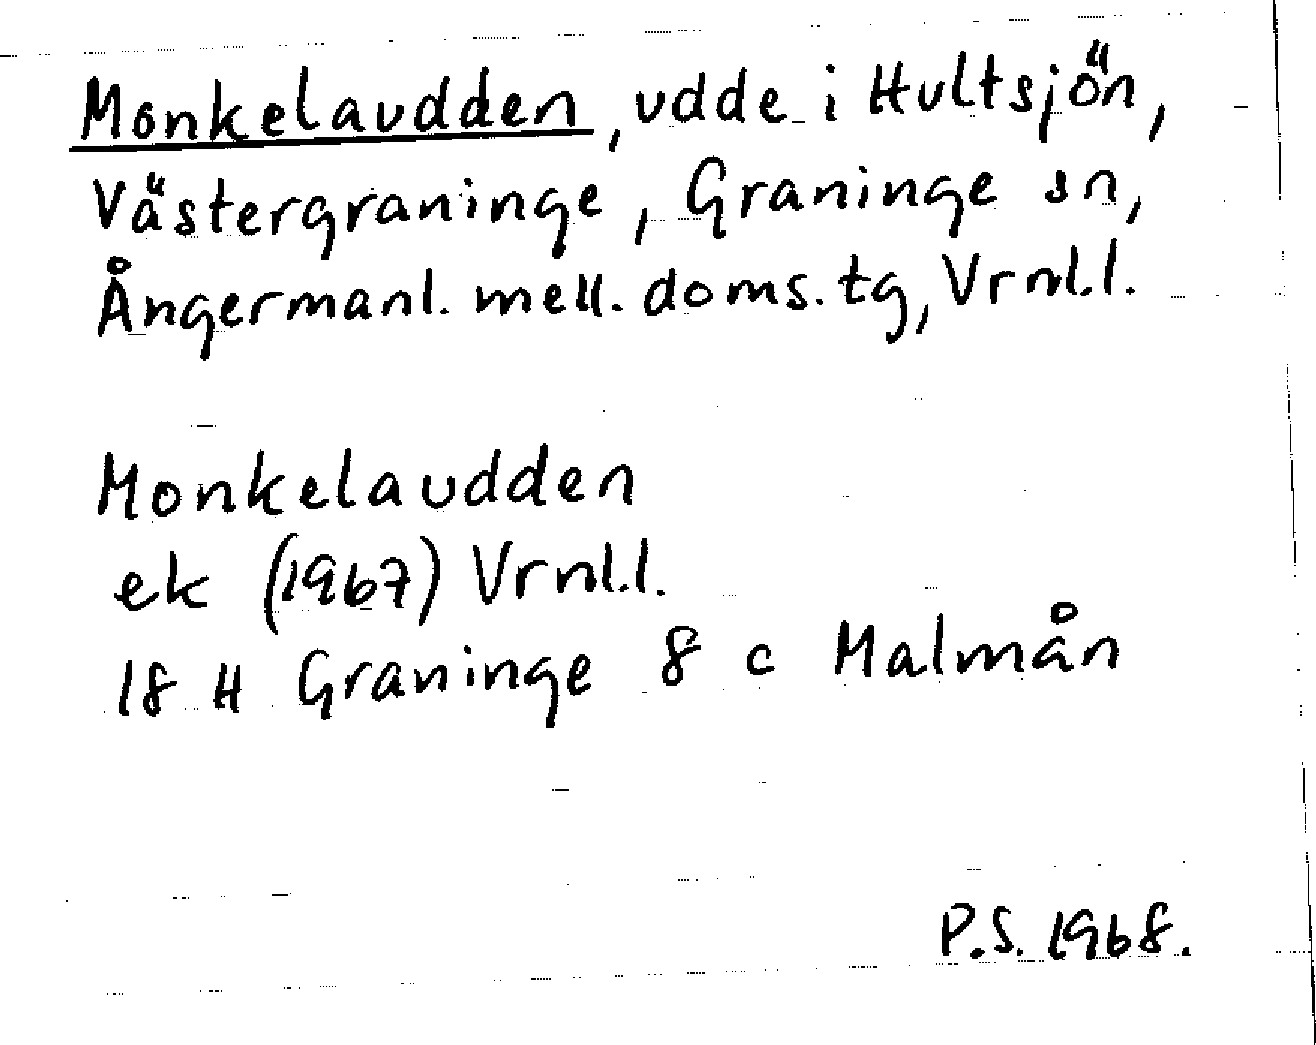 Monkelaudden, udde i Hultsjön,
Västergraninge, Graninge sn,
Ångermanl. mell. doms. tg, Vrnl.l.
Monkelaudden
ek (1967) Vrnl.l.
18 H Graninge 8 c Malmån
P.S. 1968.